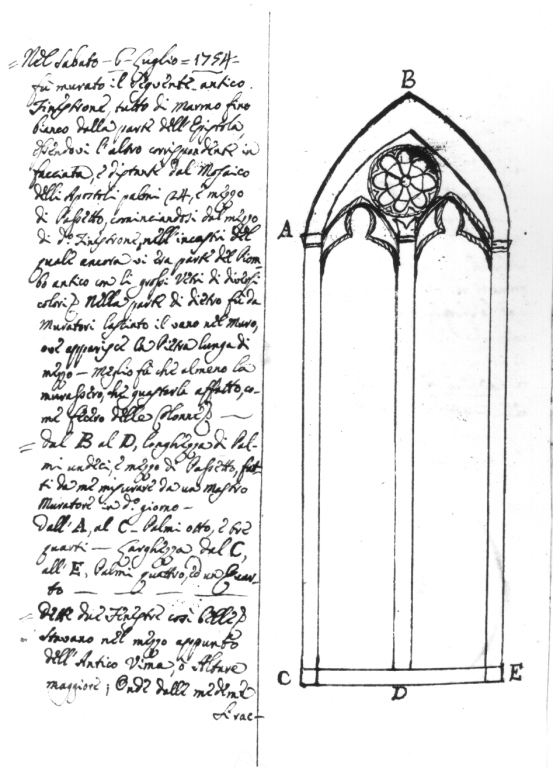 = Nel Sabato - 6 - Luglio = 1754 -
fù murato il seguente antico
Finestrone, tutto di Marmo fino
bianco dalla parte dell'Epistola,
essendovi l'altro corrispondente in
facciata, e distante dal Mosaico
delli Apostoli palmi 24, e mezzo
di Passetto, cominciandosi dal mezzo
di d.o Finestrone, nell'incastri del
quale ancora vi era parte del Piom
bo antico con li grossi Vetri di diversi
colori; Nella parte di dietro fù da
Muratori lasciato il vano nel Muro,
ove apparisce la Pietra lunga di
mezzo - meglio fù che almeno la
murassero, che guastarla affatto, co-
me fecero delle Colonne;
= dal B al D, longhezza di Pal-
mi undeci, e mezzo di Passetto, fat-
ti da me misurare da un Mastro
Muratore in d.o giorno -
Dall'A, al C - Palmi otto, e tre
quarti - Larghezza dal C,
all'E, Palmi quattro, ed un Quar-
to
= dette due Finestre così belle;
stavano nel mezzo appunto
dell'Antico Vima, ò Altare
maggiore; Onde dalle medeme
si rac-
B
A
C
D
E